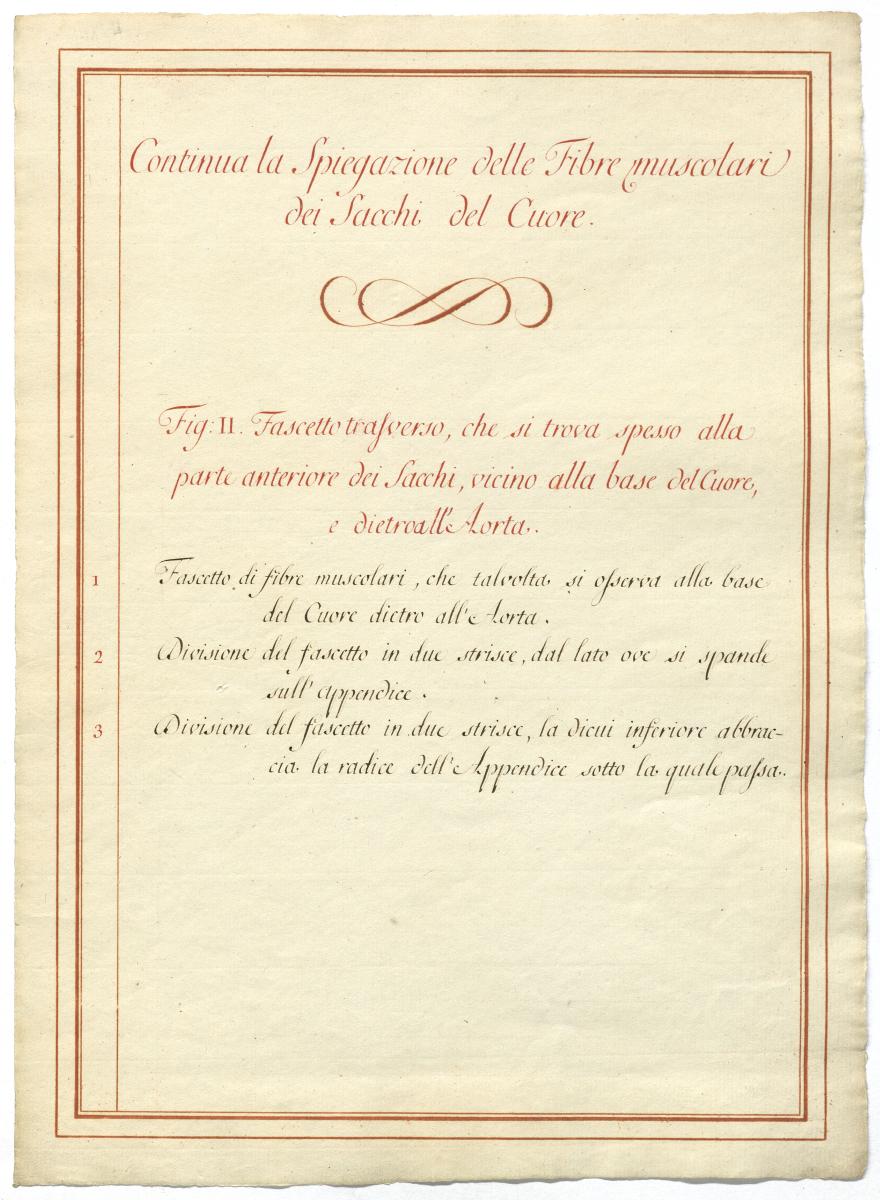 Continua la Spiegazione delle Fibre muscolari
dei Sacchi del Cuore.
Fig: II. Fascetto trasverso, che si trova spesso alla
parte anteriore dei Sacchi, vicino alla base del Cuore,
e dietro all'Aorta.
1 Fascetto di fibre muscolari, che talvolta si osserva alla base
del Cuore dietro all'Aorta.
2 Divisione del fascetto in due strisce, dal lato ove si spande
sull'appendice.
3 Divisione del fascetto in due strisce, la di cui inferiore abbrac-
cia la radice dell'Appendice sotto la quale passa.